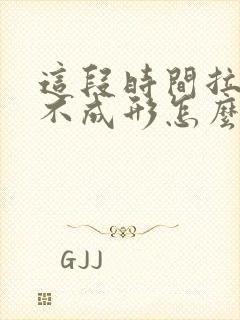 這段時間拉
不成形怎麼
GJJ